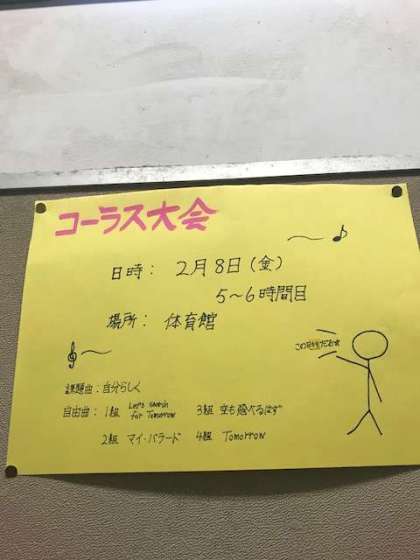 コーラス大会
日時： 2月8日(金)
5〜6時間目
場所： 体育館
課題曲：自分らしく
自由曲：1組 Let's search for Tomorrow 3組 空も飛べるはず
2組 マイ・バラード 4組 Tomorrow